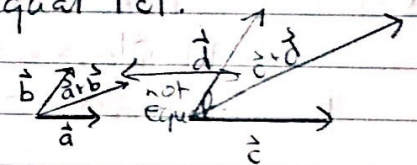 equal |c|.
b⃗ a⃗+b⃗ d⃗ c⃗+d⃗
not
Equal
a⃗ c⃗